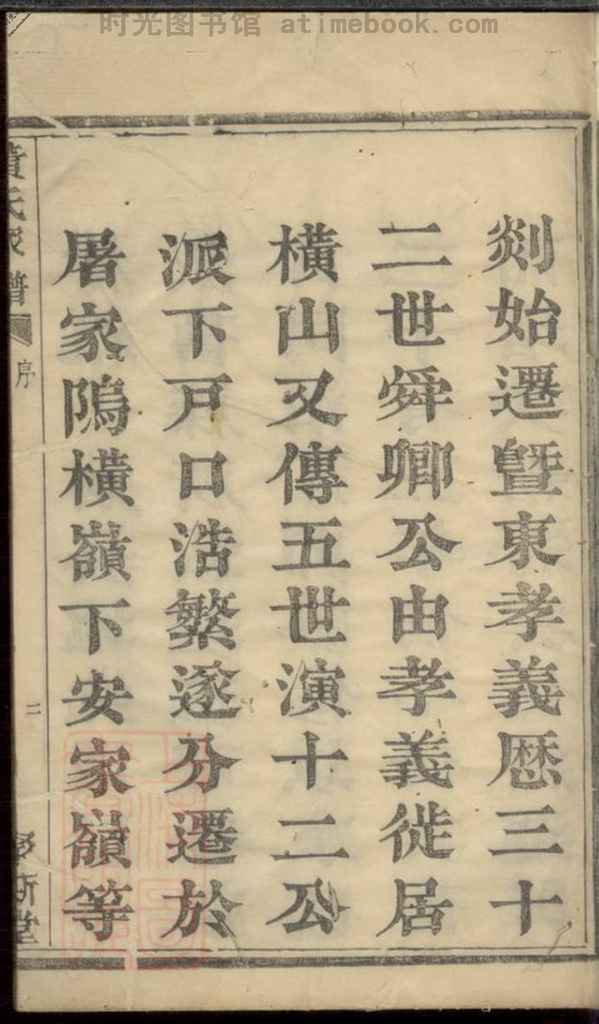 时光图书馆 - atimebook.com
剡始遷曁東孝義歴三十
二世舜卿公由孝義徙居
橫山又傳五世演十二公
派下戸口浩繁遂分遷於
屠家隖橫嶺下安家嶺等
黄氏家譜
序
二